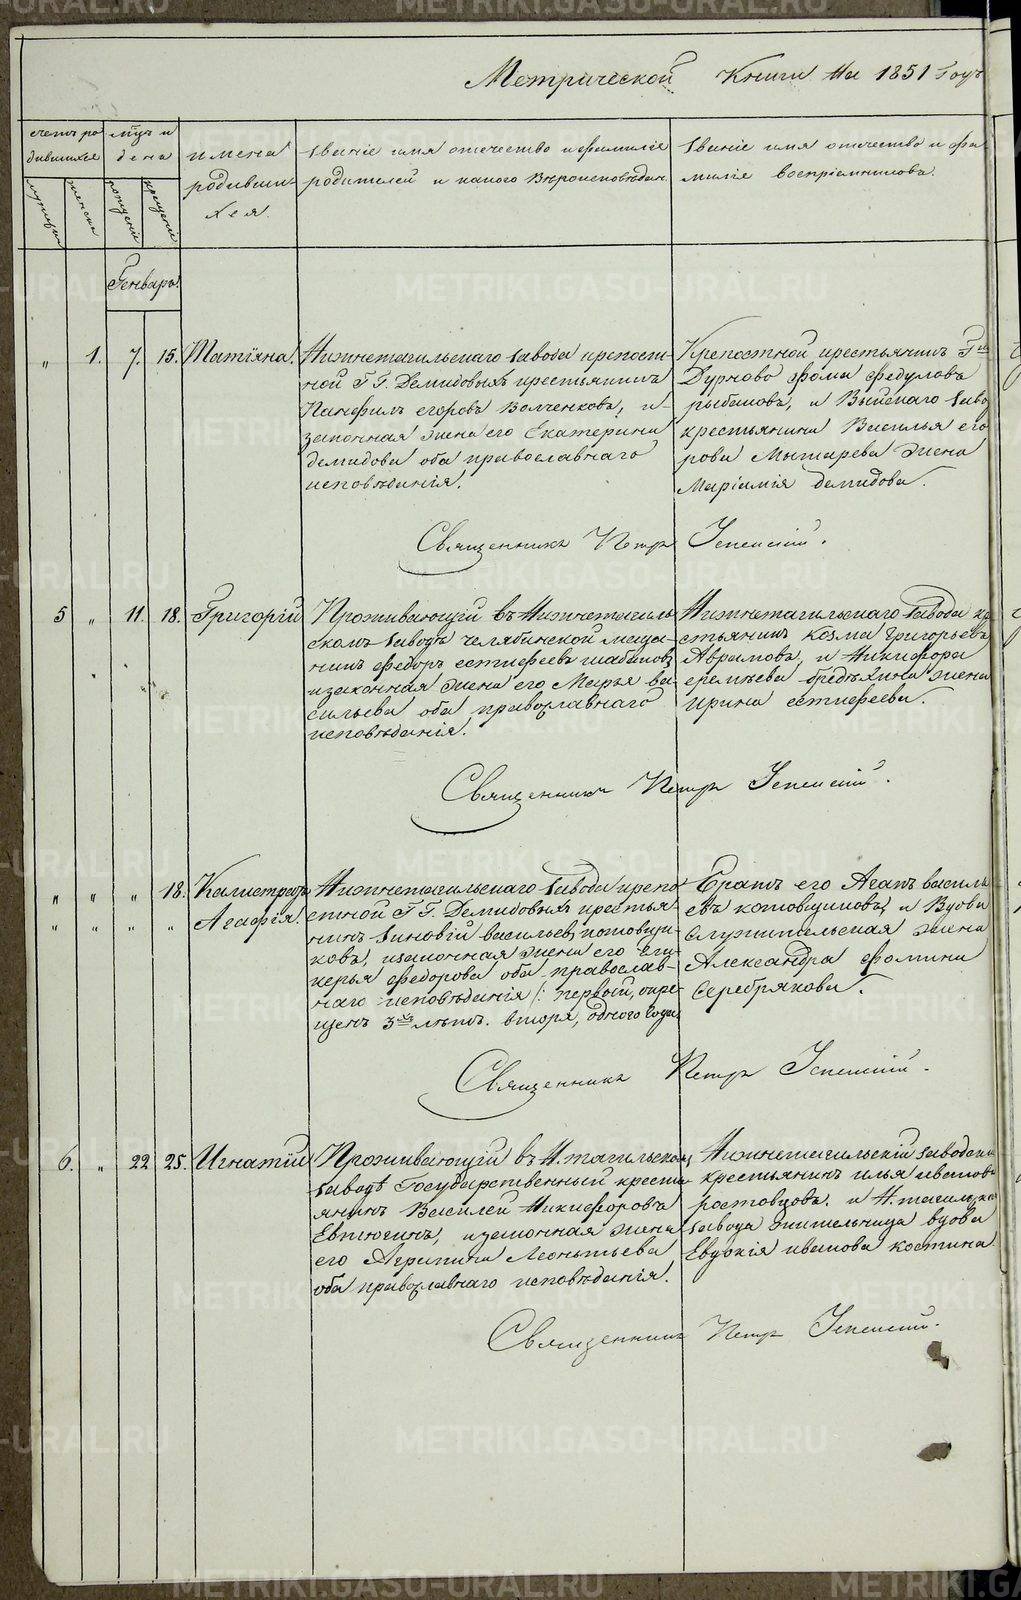 Метрической Книги На 1851 Годъ
счетъ ро
дившихся
мѣсяцъ и
дена
имена
родивши
хся.
званіе имя отечество и фамиліе
родителей и какого Вѣроисповѣдан.
званіе имя отечество и фа
миліе воспріемниковъ.
мужеска
женска
рожденіе
крещеніе
Генварь.
„ 1. 7. 15. Татіяна.
Нижнетагильскаго завода крепост-
ной Г.Г. Демидовыхъ крестьянинъ
Панфилъ егоровъ Волченковъ, и
законная жена его Екатерина
демидова оба православнаго
исповѣданія.
Крепостной крестьянинъ Г
Дурново фома федуловъ
рыбаковъ, и Выйскаго заво
крестьянина Василья его
рова Мытарева жена
Маріамія демидова.
Священникъ Петръ Успенскій.
5 „ 11. 18. Григорій
Проживающій въ Нижнетагиль
скомъ заводѣ челябинской меща-
нинъ федоръ естифеевъ шабановъ
и законная жена его Марья ва
сильева оба православнаго
исповѣданія.
Нижнетагильскаго завода кре
стьянинъ козма Григорьевъ
Аврамовъ, и Никифора
еремѣева бредихина жена
ирина естифеева.
Священникъ Петръ Успенскій.
„ „ „ 18. Калистратъ
„ „ „ „ Агафія.
Нижнетагильскаго завода крепо
стной Г.Г. Демидовыхъ крестья-
нинъ зиновій васильевъ котовщи-
ковъ, и законная жена его Глу
керья федорова оба православ-
наго исповѣданія /: первый, окре-
щенъ 3хъ лѣтъ. втора, одного года
Братъ его Агапъ василь
евъ котовщиковъ, и Вдова
служительская жена
Александра фомина
Серебрякова.
Священникъ Петръ Успенскій.
6. „ 22 25. Игнатій
Проживающій въ Н. тагильскомъ
заводѣ Государственный крестья
янинъ Василей Никифоровъ
Евтюгинъ, и законная жена
его Агрипина Леонтьева
оба православнаго исповѣданія.
Нижнетагильскій заводской
крестьянинъ илья ивановъ
ростовцовъ. и Н. тагильска
завода жительница вдова
Евдокія иванова костина
Священникъ Петръ Успенскій.
METRIKI.GASO-URAL.RU